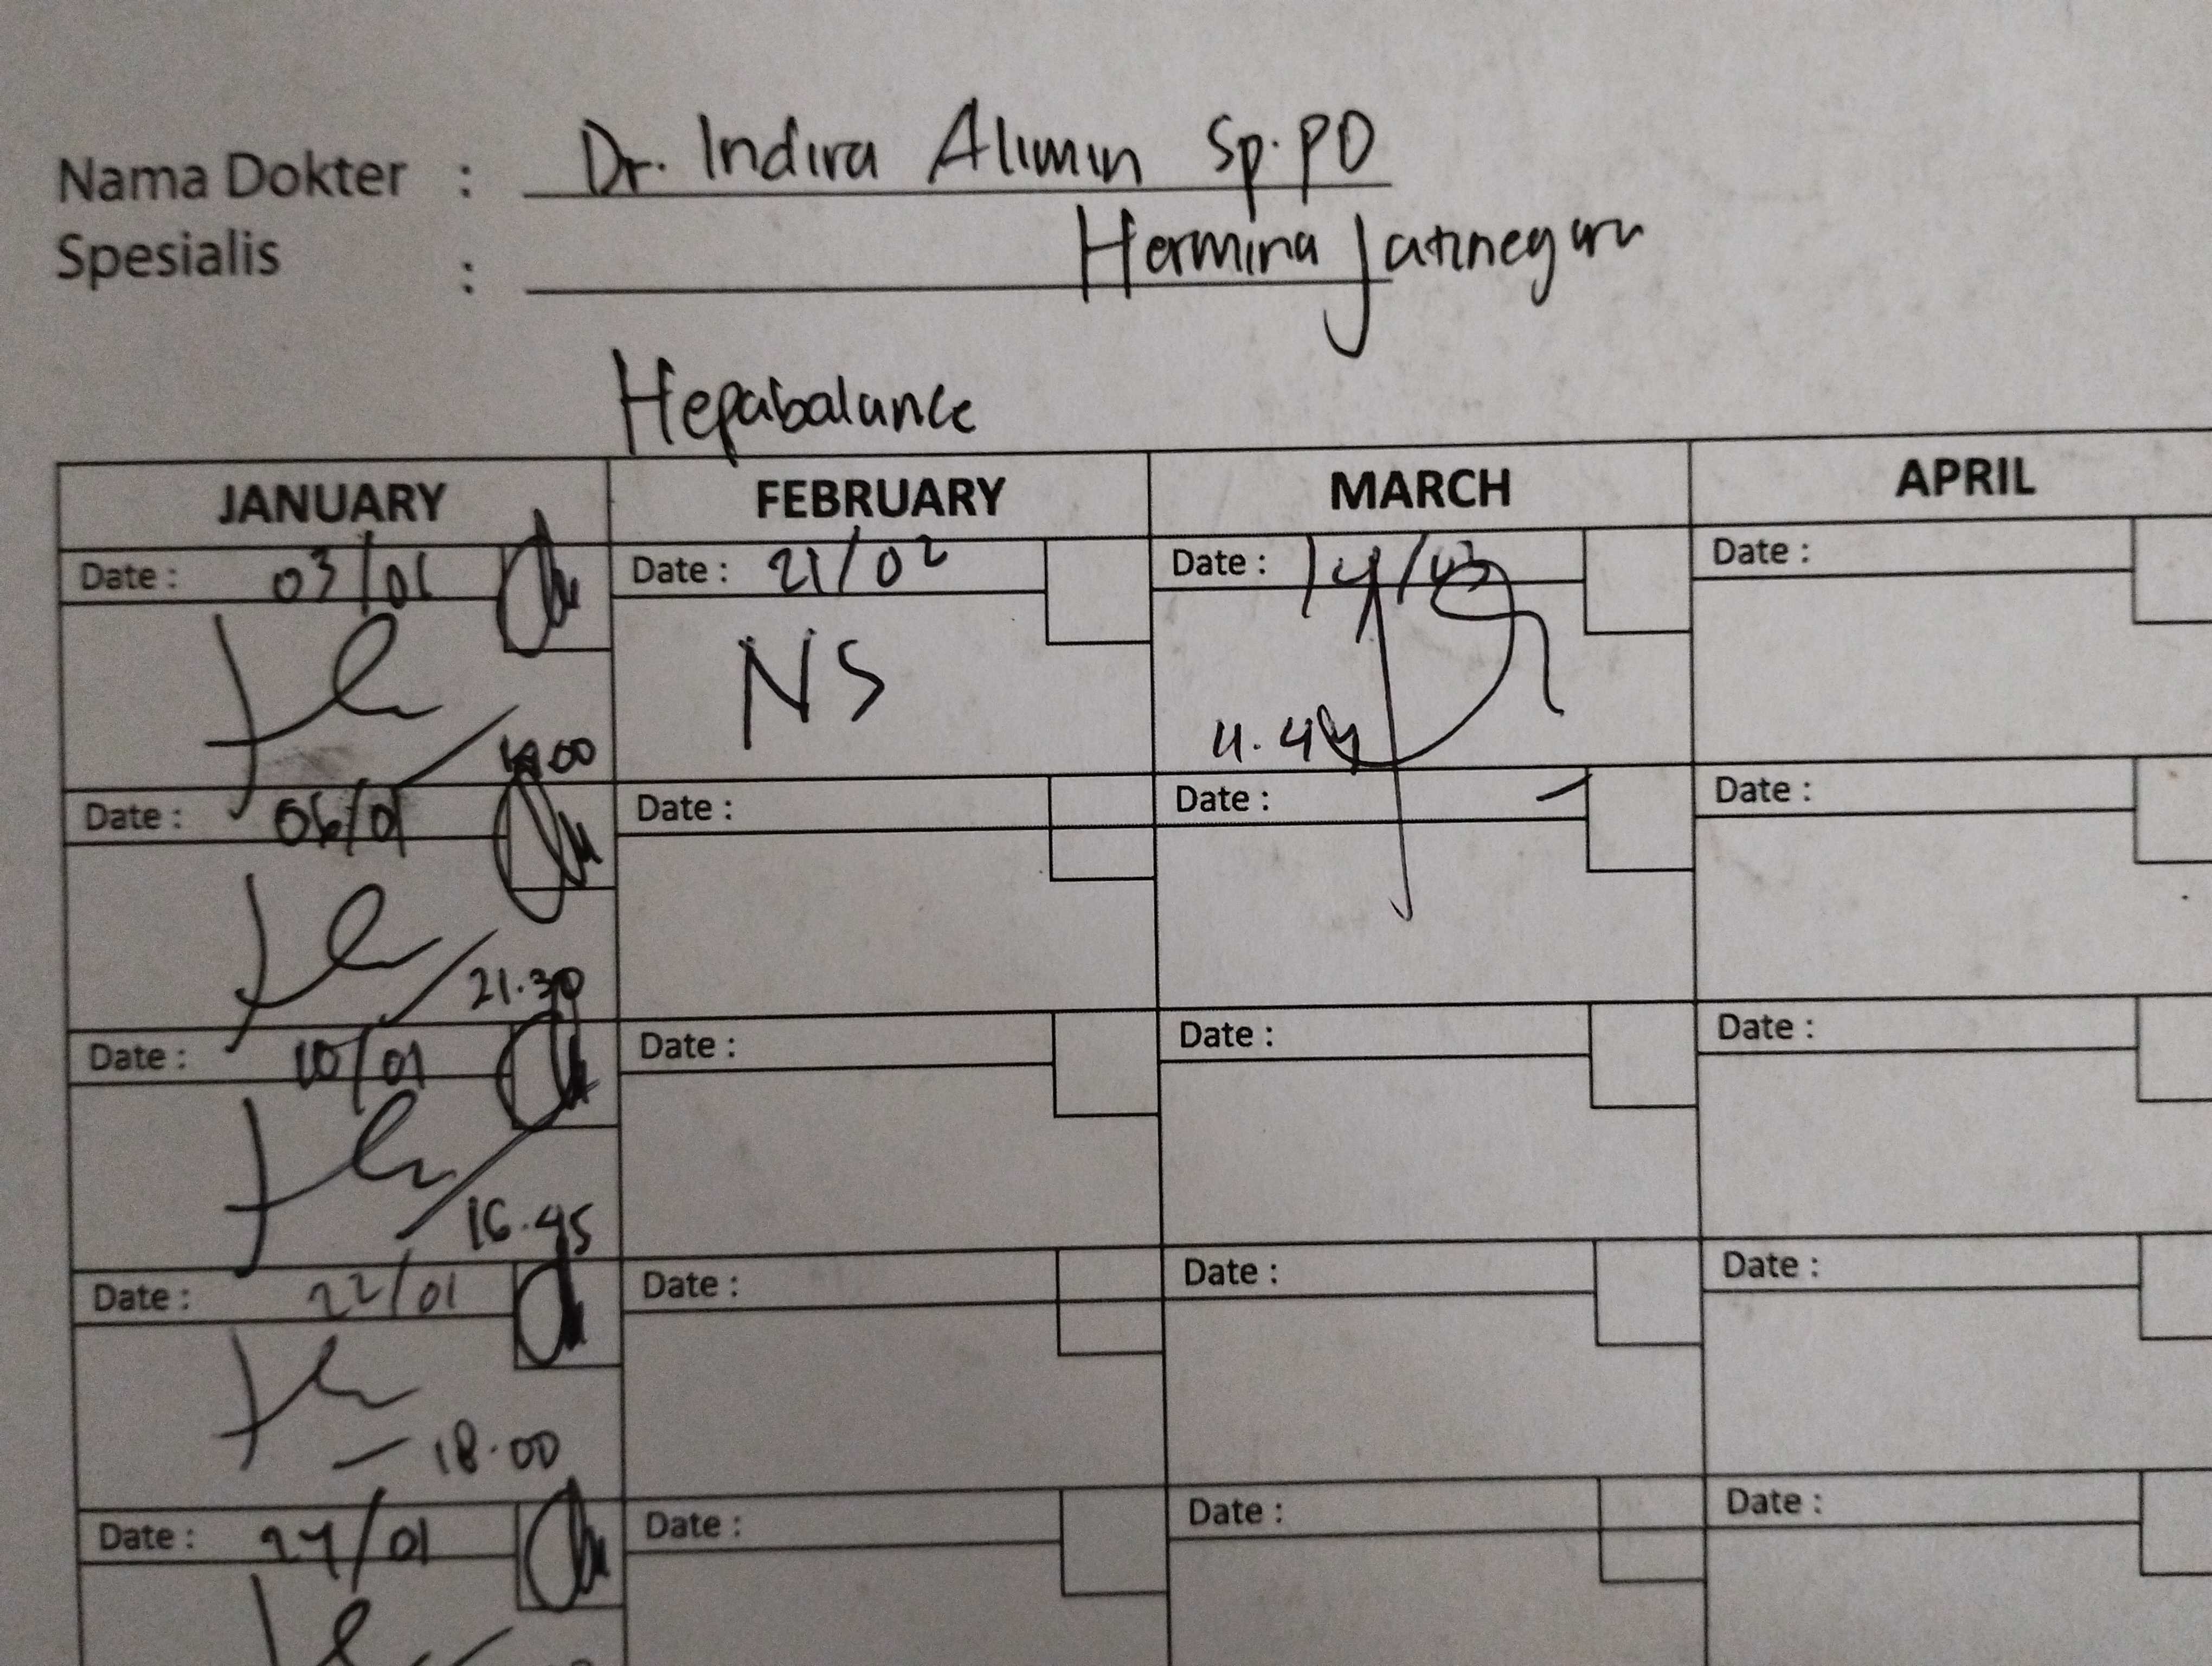 Nama Dokter : Dr. Indira Alimin Sp.PD
Spesialis : Hermina Jatinegara
Hepabalance
JANUARY FEBRUARY MARCH APRIL
Date : 03/01 Date : 21/02 Date : 14/03 Date :
NS
Date : 06/01 Date : Date : Date :
21.30
Date : 10/01 Date : Date : Date :
16.45
Date : 22/01 Date : Date : Date :
18.00
Date : 24/01 Date : Date : Date :